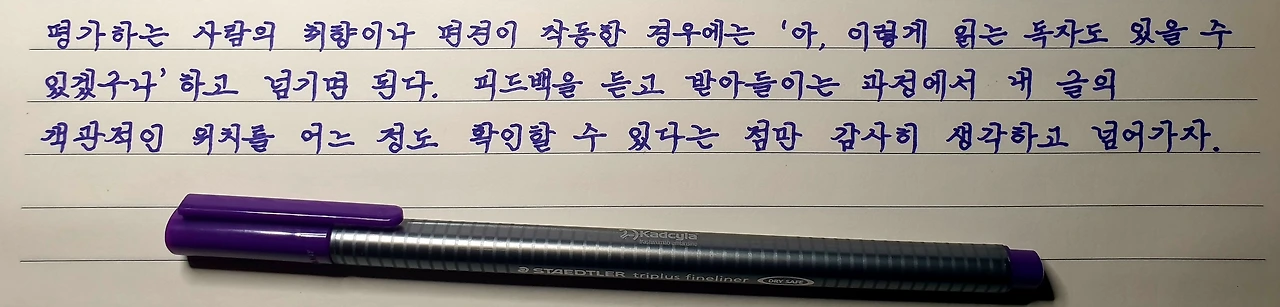 평가하는 사람의 취향이나 편견이 작동한 경우에는 '아, 이렇게 읽는 독자도 있을 수
있겠구나' 하고 넘기면 된다. 피드백을 듣고 받아들이는 과정에서 내 글의
객관적인 위치를 어느 정도 확인할 수 있다는 점만 감사히 생각하고 넘어가자.
Kadcyla
STAEDTLER triplus fineliner DRY SAFE